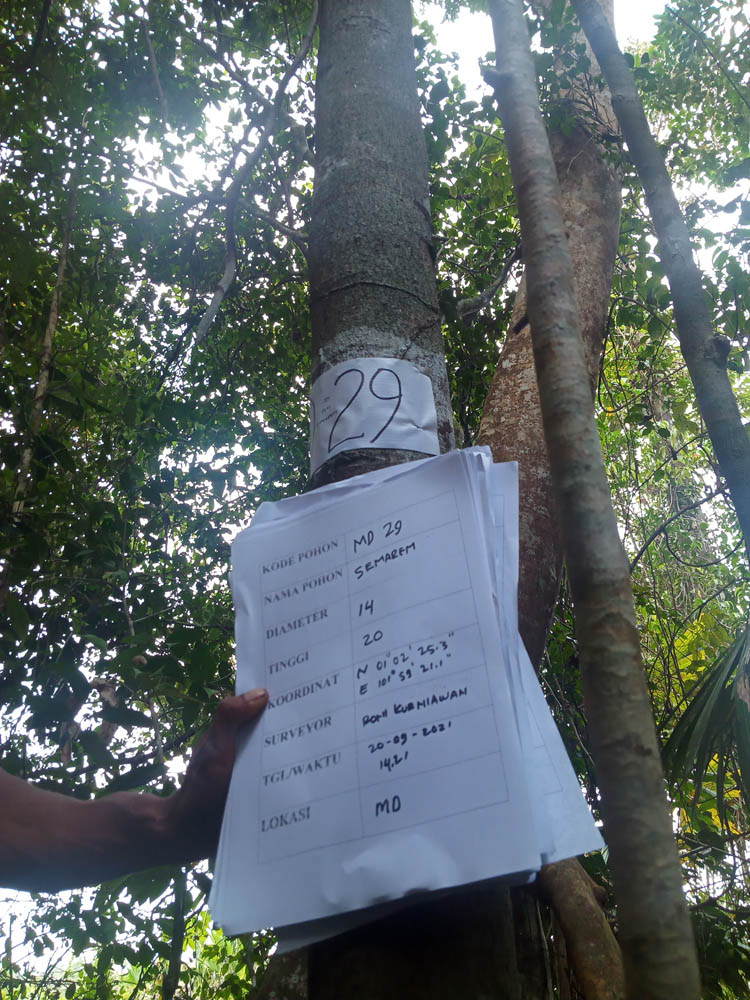 29
KODE POHON MD 29
NAMA POHON SEMAREM
DIAMETER 14
TINGGI 20
KOORDINAT N 01°02' 25.3"
E 101° 59' 21.1"
SURVEYOR KURNIAWAN
TGL/WAKTU 20-09-2021
14.21
LOKASI MD